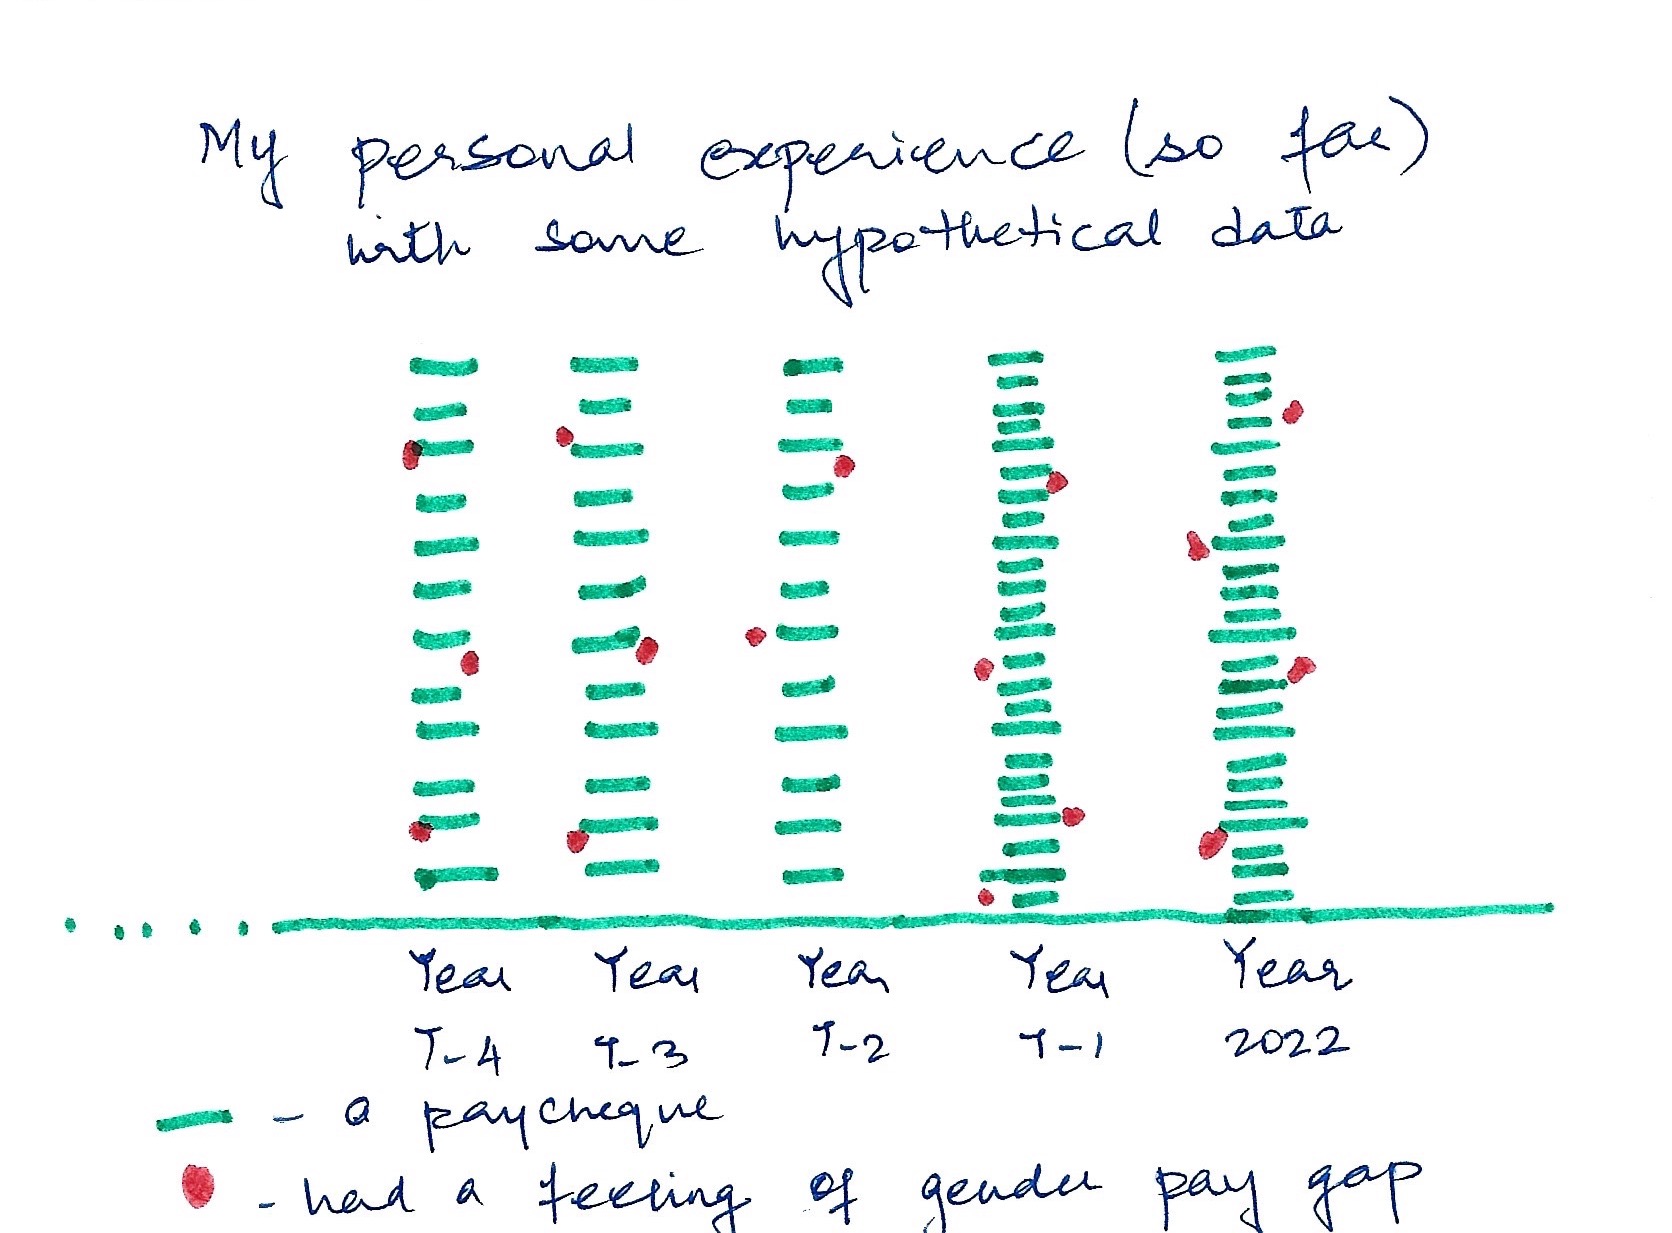 My personal experience (so far)
with some hypothetical data
Year Year Year Year Year
T-4 T-3 T-2 T-1 2022
- a paycheque
- had a feeling of gender pay gap